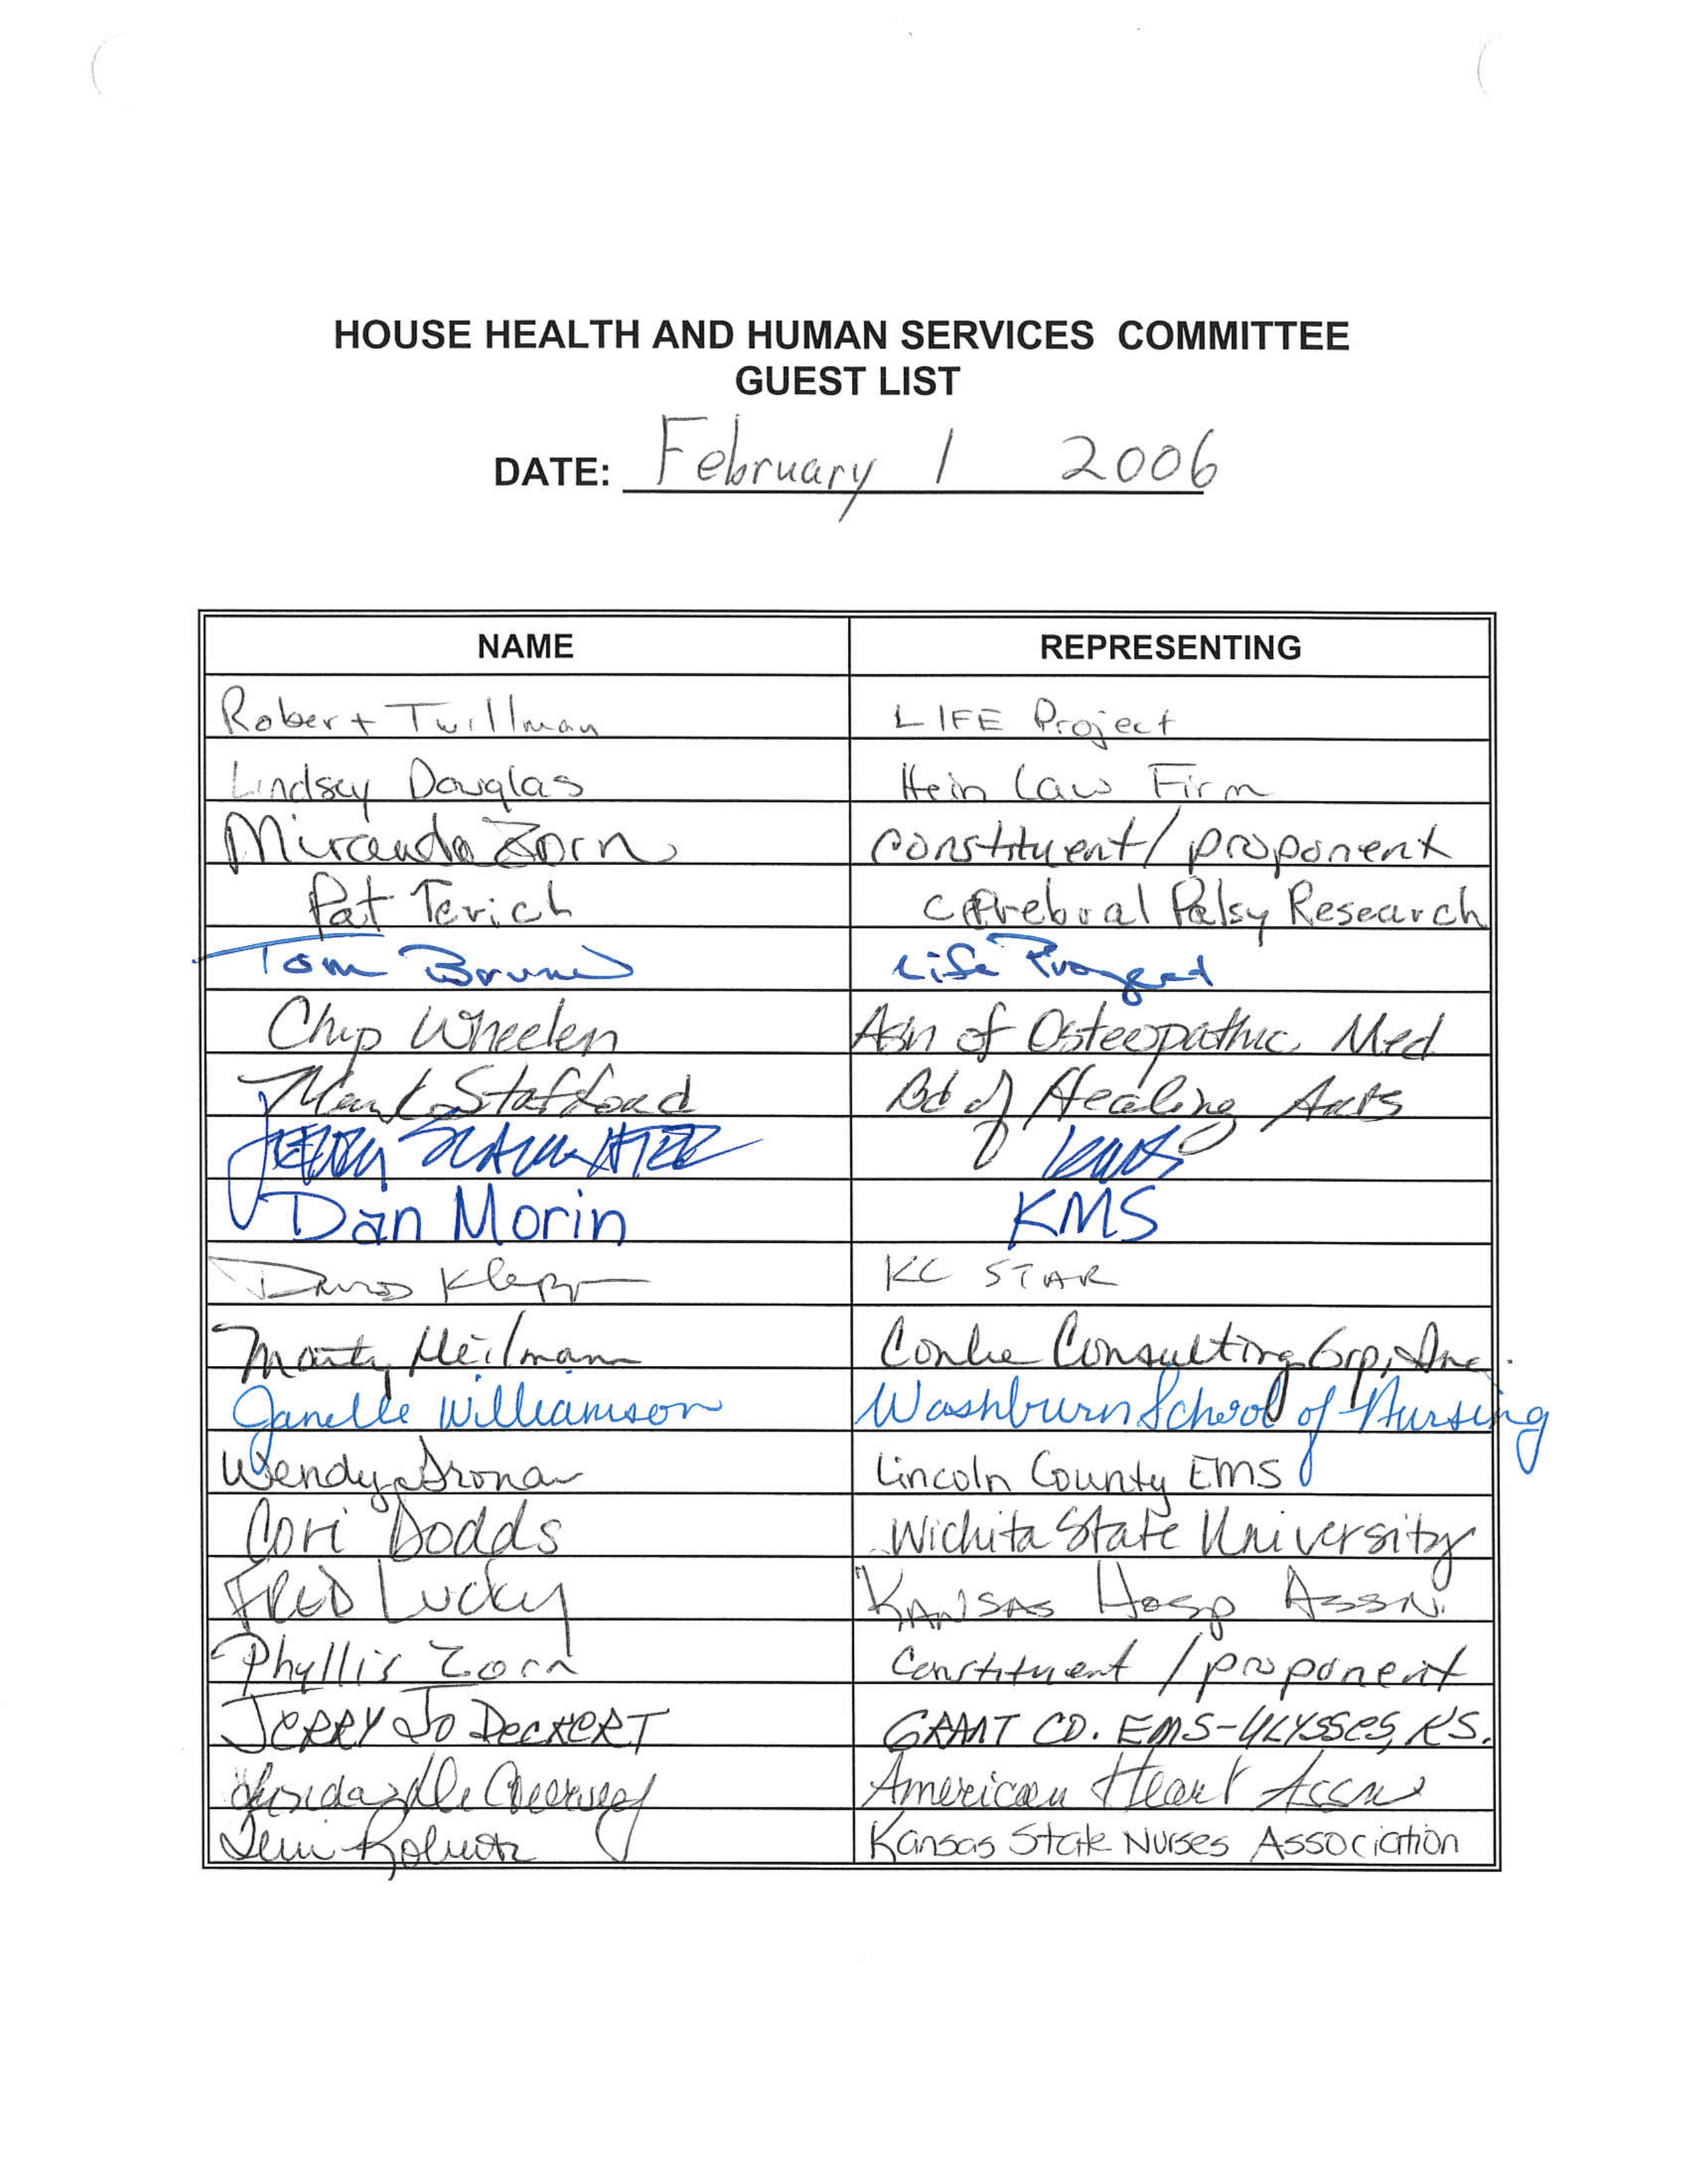 HOUSE HEALTH AND HUMAN SERVICES COMMITTEE
GUEST LIST
DATE: February 1 2006
NAME REPRESENTING
Robert Twillman LIFE Project
Lindsey Douglas Hein Law Firm
Miranda Zorn constituent/proponent
Pat Terich Cerebral Palsy Research
Tom Bruno Life
Chip Wheelen Assn of Osteopathic Med
Mark Stafford Bd of Healing Arts
JERRY SLAUGHTER KMS
Dan Morin KMS
KC STAR
Marty Heilman Conlee Consulting Grp, Inc.
Janelle Williamson Washburn School of Nursing
Wendy Lincoln County EMS
Cori Dodds Wichita State University
FRED Lucky KANSAS Hosp ASSN.
Phyllis Zorn Constituent / proponent
JERRY JO DECKERT GRANT CO. EMS-ULYSSES, KS.
American Heart Assn
Terri Roberts Kansas State Nurses Association